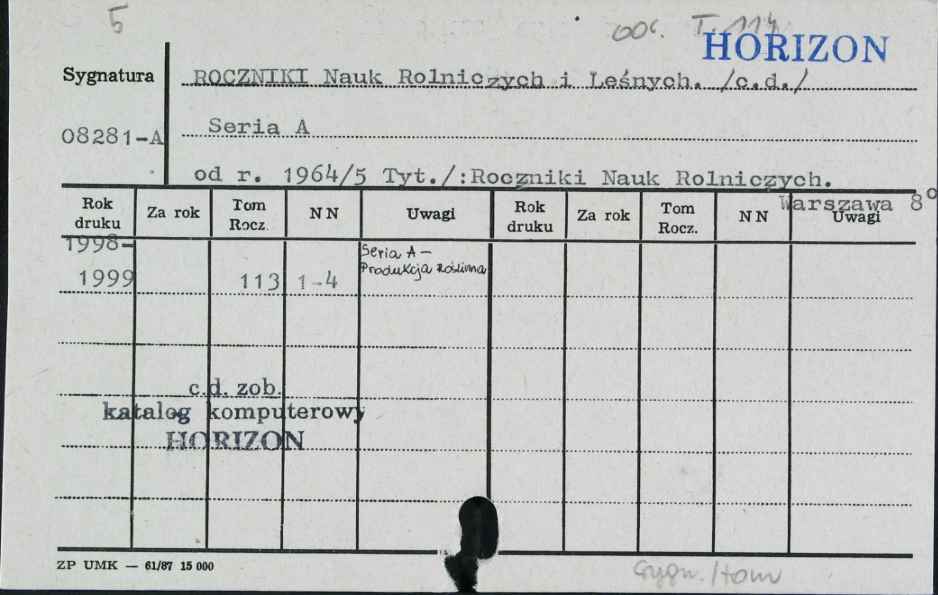 5
T. 114
HORIZON
Sygnatura
ROCZNIKI Nauk Rolniczych i Leśnych. /c.d./
08281-A
Seria A
od r. 1964/5 Tyt./:Roczniki Nauk Rolniczych.
Warszawa 8°
Rok druku Za rok Tom Rocz. NN Uwagi Rok druku Za rok Tom Rocz. NN Uwagi
1998-
1999 113 1-4 Seria A -
Produkcja Roślinna
c.d. zob.
katalog komputerowy
HORIZON
ZP UMK — 61/87 15 000
sygn./tom